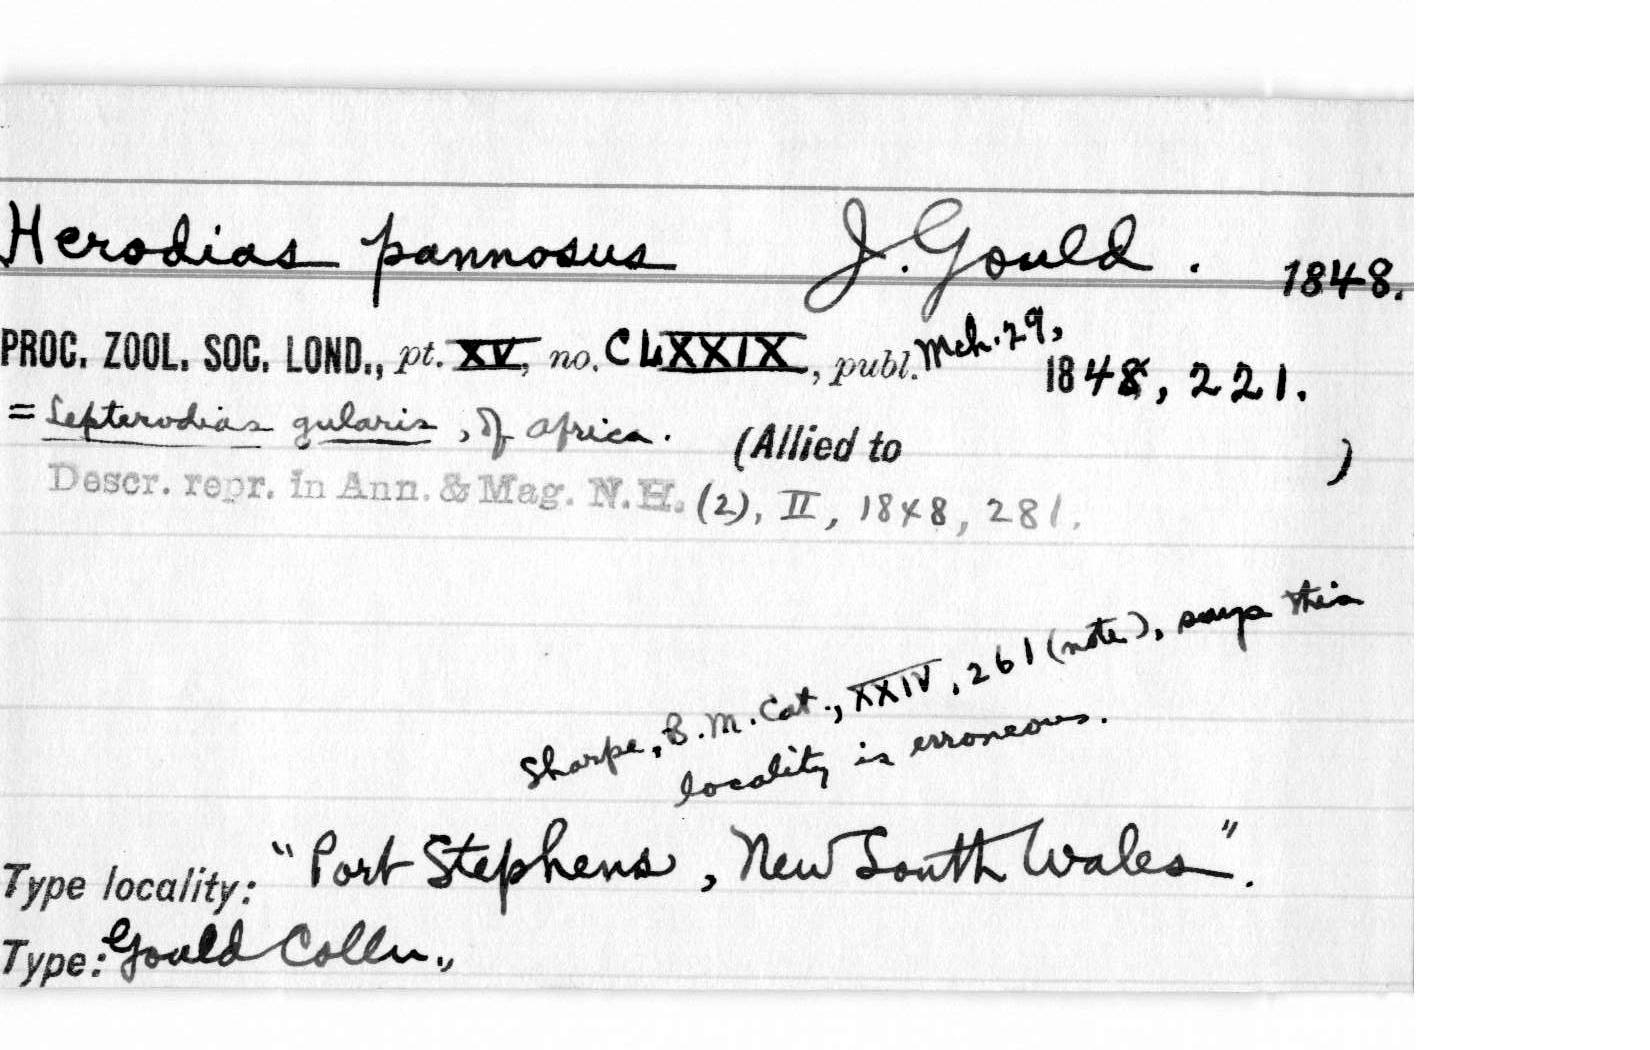 Herodias pannosus J. Gould. 1848.
PROC. ZOOL. SOC. LOND., pt. XV, no. CLXXIX, publ. Mch. 29,
1848, 221.
= Lepterodias gularis, of Africa. (Allied to )
Descr. repr. in Ann. & Mag. N.H. (2), II, 1848, 281.
Sharpe, B.M. Cat., XXIV, 261 (note), says this
locality is erroneous.
Type locality: "Port Stephens, New South Wales".
Type: Gould Colln.,